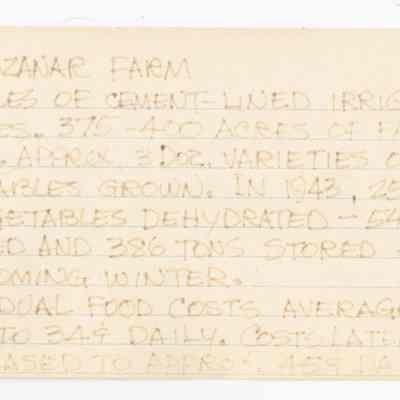 ZANAR FARM
LES OF CEMENT-LINED IRRIG
ES. 375-400 ACRES OF FA
. APPROX. 3 DOZ. VARIETIES O
ABLES GROWN. IN 1943, 25
GETABLES DEHYDRATED - 54
ED AND 386 TONS STORED
OMING WINTER.
DUAL FOOD COSTS AVERAG
TO 34¢ DAILY. COSTS LATE
EASED TO APPROX. 45¢ DA